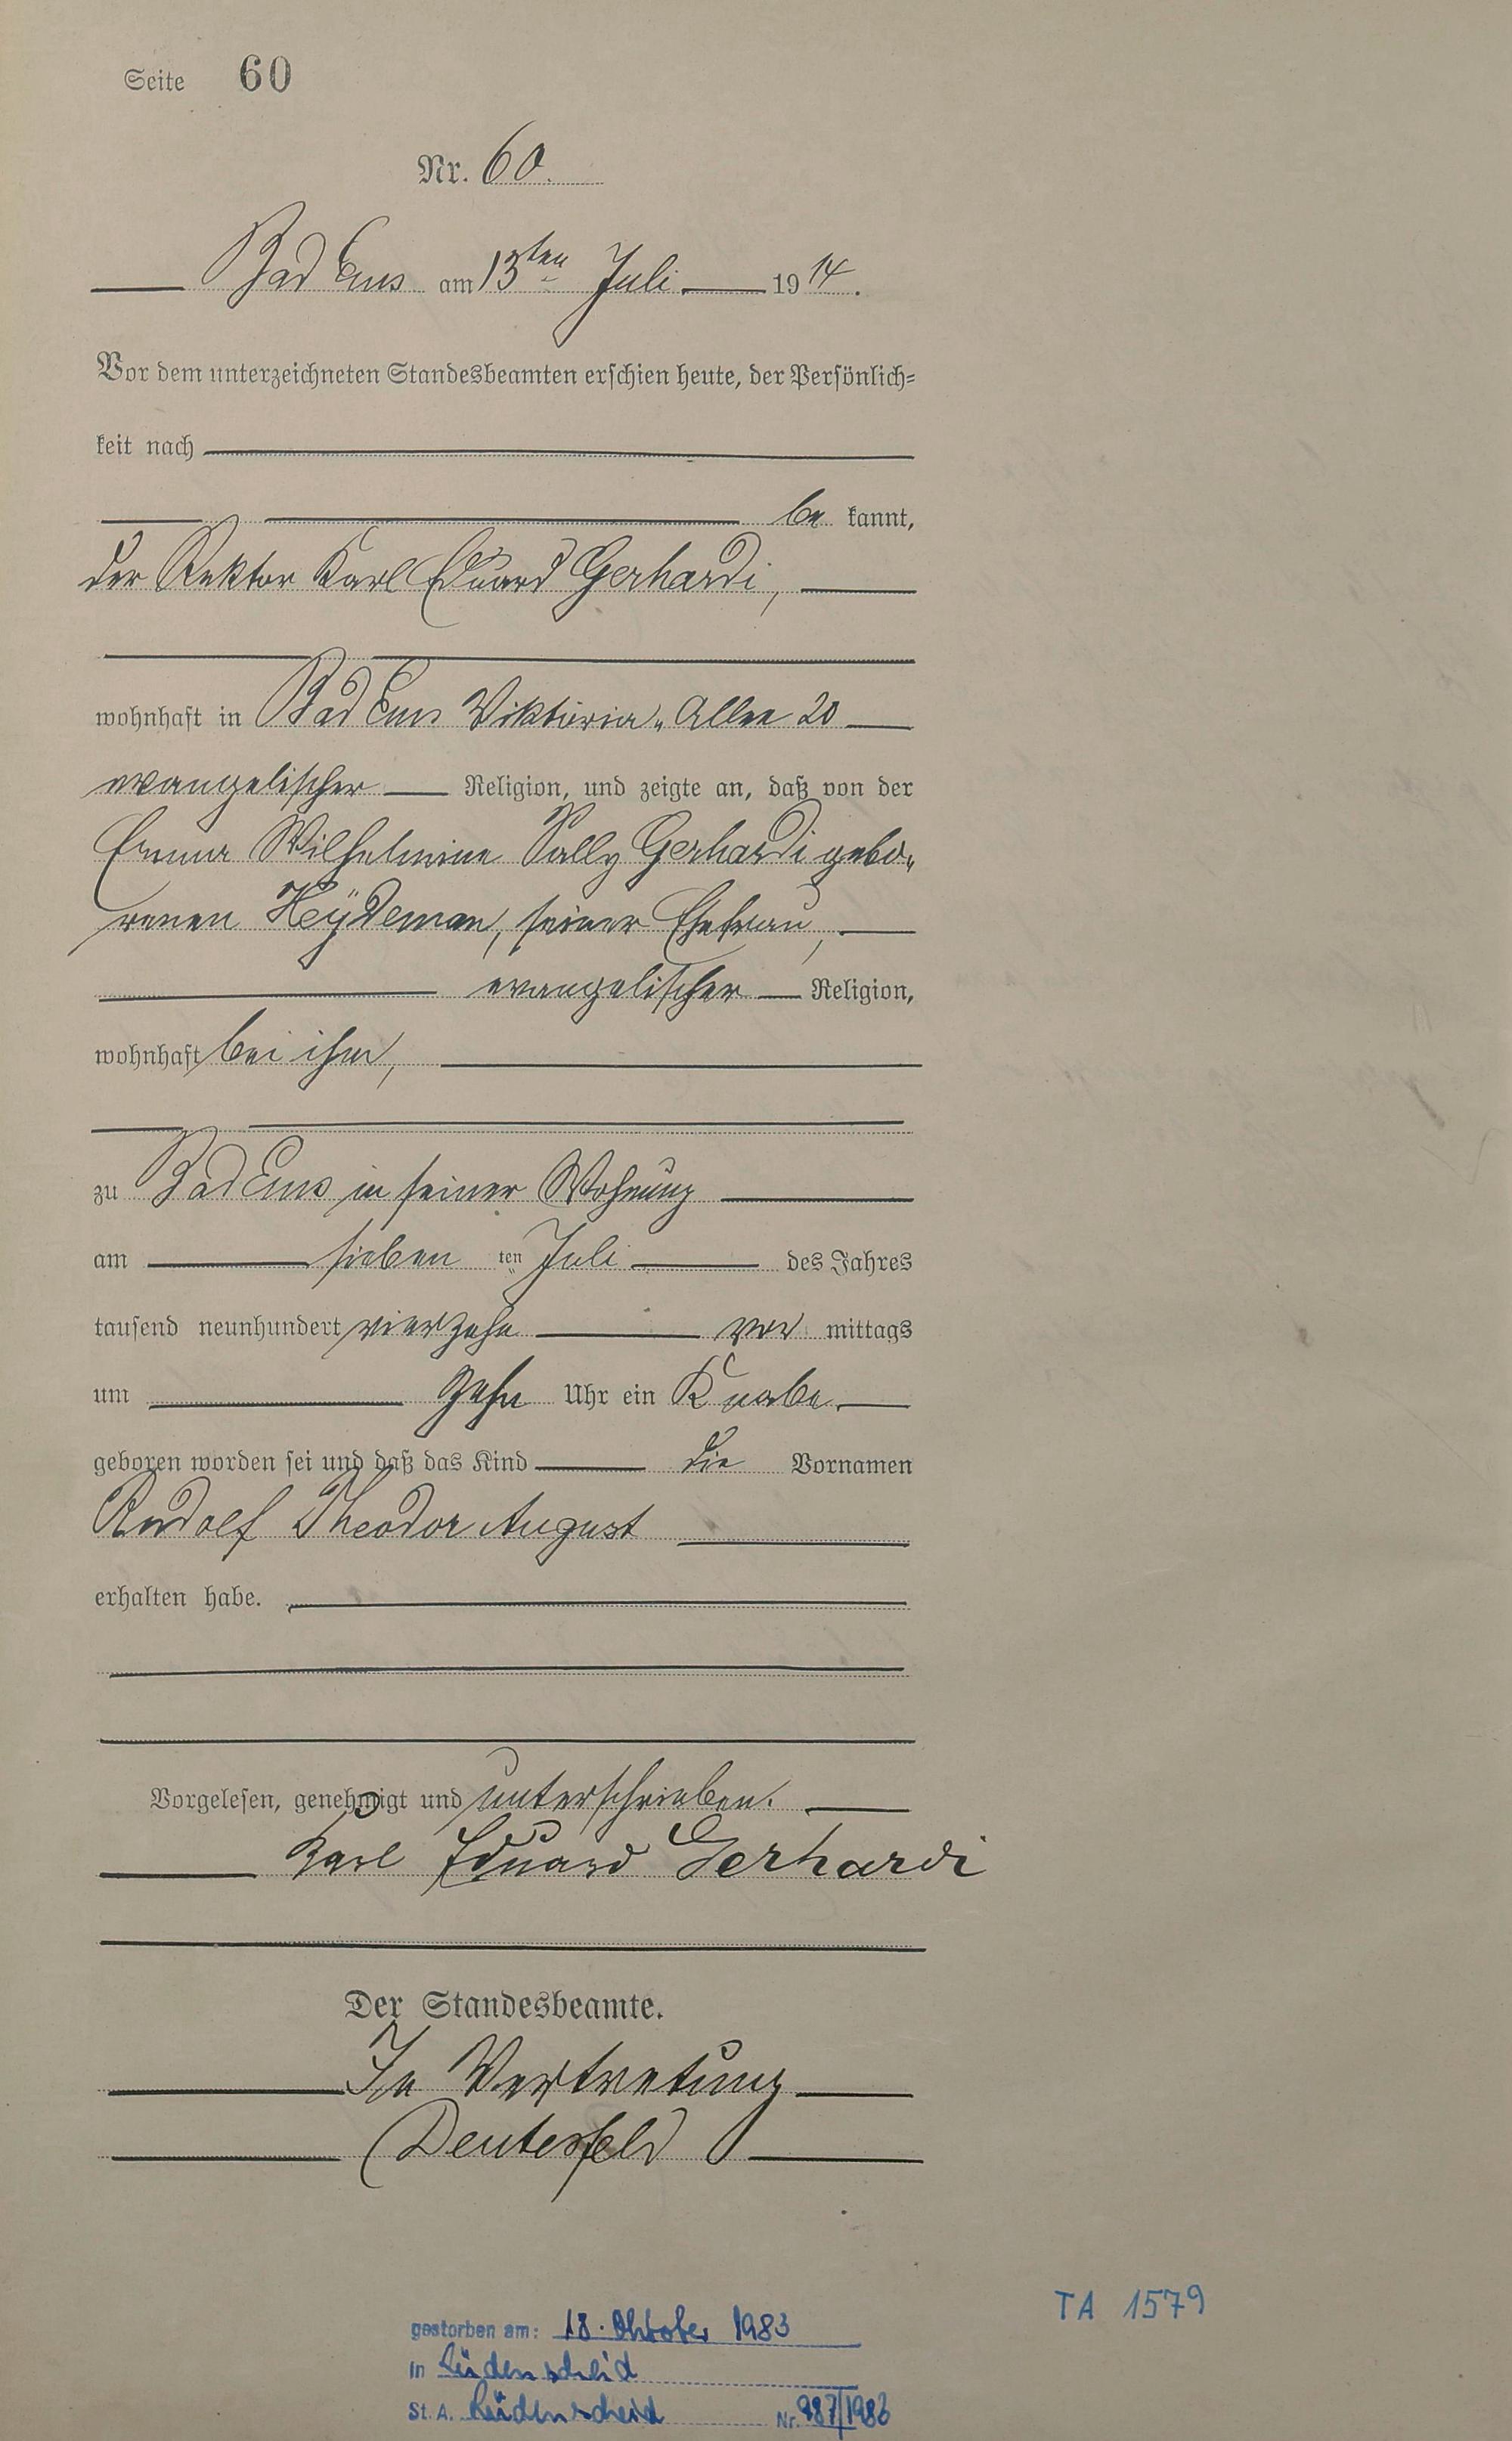 Seite 60
Nr. 60.
Bad Ems am 13ten Juli 1914.
Vor dem unterzeichneten Standesbeamten erschien heute, der Persönlich-
keit nach
be kannt,
der Rektor Karl Eduard Gerhardi,
wohnhaft in Bad Ems Viktoria-Allee 20
evangelischer Religion, und zeigte an, daß von der
Emma Wilhelmine Sally Gerhardi gebo-
renen Heÿdeman, seiner Ehefrau,
evangelischer Religion,
wohnhaft bei ihm,
zu Bad Ems in seiner Wohnung
am sieben ten Juli des Jahres
tausend neunhundert vierzehn vor mittags
um zehn Uhr ein Knabe
geboren worden sei und daß das Kind die Vornamen
Rudolf Theodor August
erhalten habe.
Vorgelesen, genehmigt und unterschrieben.
Karl Eduard Gerhardi
Der Standesbeamte.
In Vertretung
Deutesfeld
gestorben am: 18. Oktober 1983
in Lüdenscheid
St. A. Lüdenscheid Nr. 987/1983
TA 1579